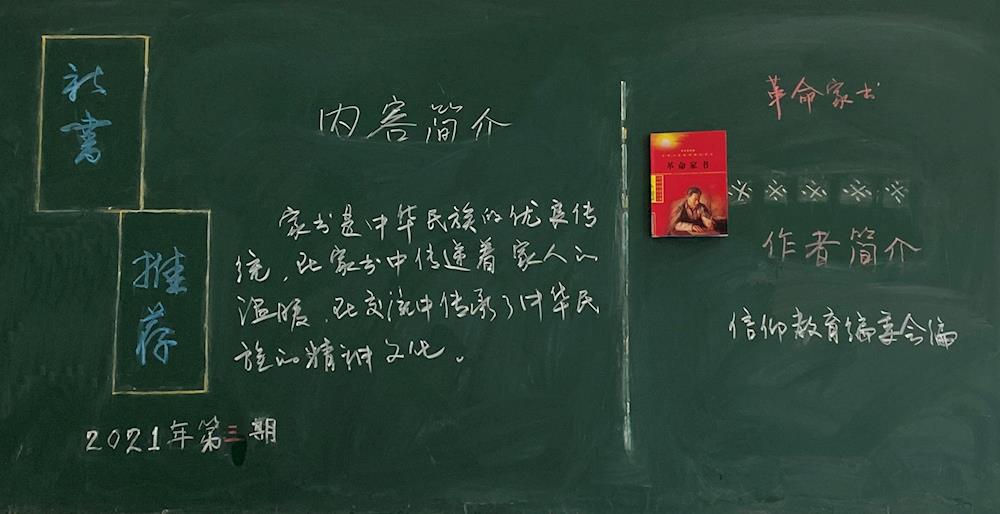 新书
推荐
2021年第三期
内容简介
家书是中华民族的优良传
统，在家书中传递着家人的
温暖，在交流中传承了中华民
族的精神文化。
革命家书
革命家书
※※※※※
作者简介
信仰教育编委会编